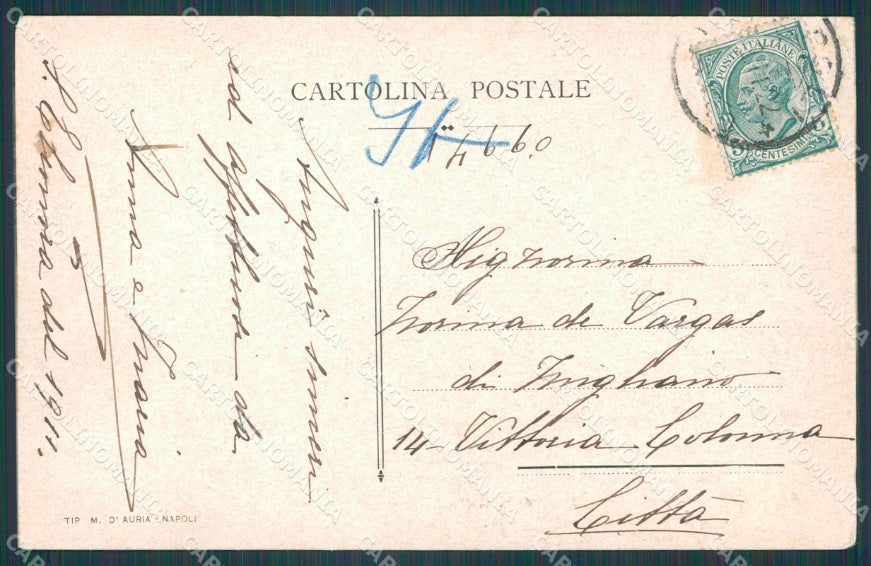 CARTOLINA POSTALE
POSTE ITALIANE
CENTESIMI
14660
Signorina
Norina de Vargas
di
14 - Vittoria Colonna
Città
Auguri sinceri
ed affettuosi da
Anna e Maria
del 1911.
TIP. M. D'AURIA - NAPOLI
CARTOLINOMANIA